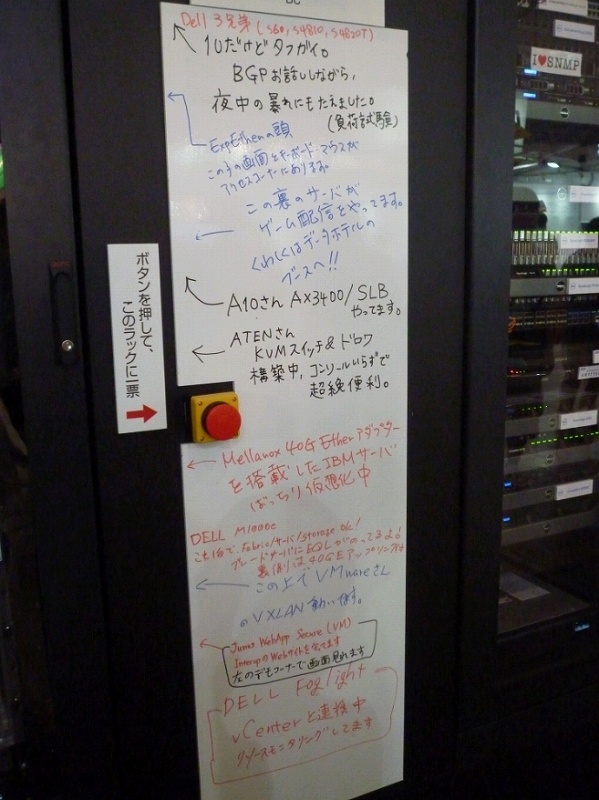 DC
Dell 3兄弟(S60, S4810, S4820T)
1Uだけどタフガイ。
BGPお話ししながら,
夜中の暴れにもたえました。
(負荷試験)
ExpEtherの頭
この子の画面とキーボード・マウスが
アクセスコーナーにありますよ。
この裏のサーバが
ゲーム配信をやってます。
くわしくはデータホテルの
ブースへ!!
A10さん AX3400/SLB
やってます。
ATENさん
KVMスイッチ&ドロワ
構築中,コンソールいらずで
超絶便利。
ボタンを押して、
このラックに一票
Mellanox 40G Etherアダプター
を搭載したIBMサーバ
ばっちり仮想化中
DELL M1000e
これ1台で、Fabric/サーバ/Storage OK!
ブレードサーバにEQLがのってるよ!
裏側は40GEアップリンク
この上でVMwareさん
のVXLAN動いてます。
Junos WebApp Secure (VM)
InteropのWebサイトを守ってます
左のデモコーナーで画面見れます
DELL Foglight
vCenterと連携中
リソースモニタリングしてます
I♥SNMP